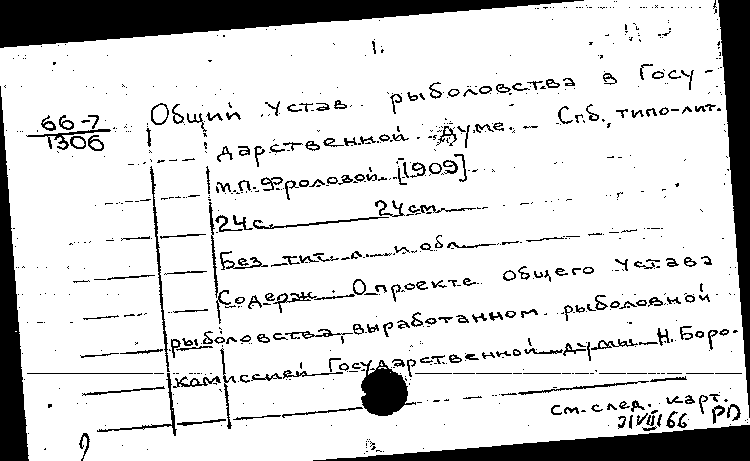 1.
66-7
1306
Общий Устав рыболовства в Госу-
дарственной Думе. – Спб., типо-лит.
М.П. Фроловой. [1909].
24 с. 24 см.
Без тит. л. и обл.
Содерж. О проекте общего Устава
рыболовства, выработанном рыболовной
комиссией Государственной думы Н. Боро-
см. след. карт.
21/VII 66 РО